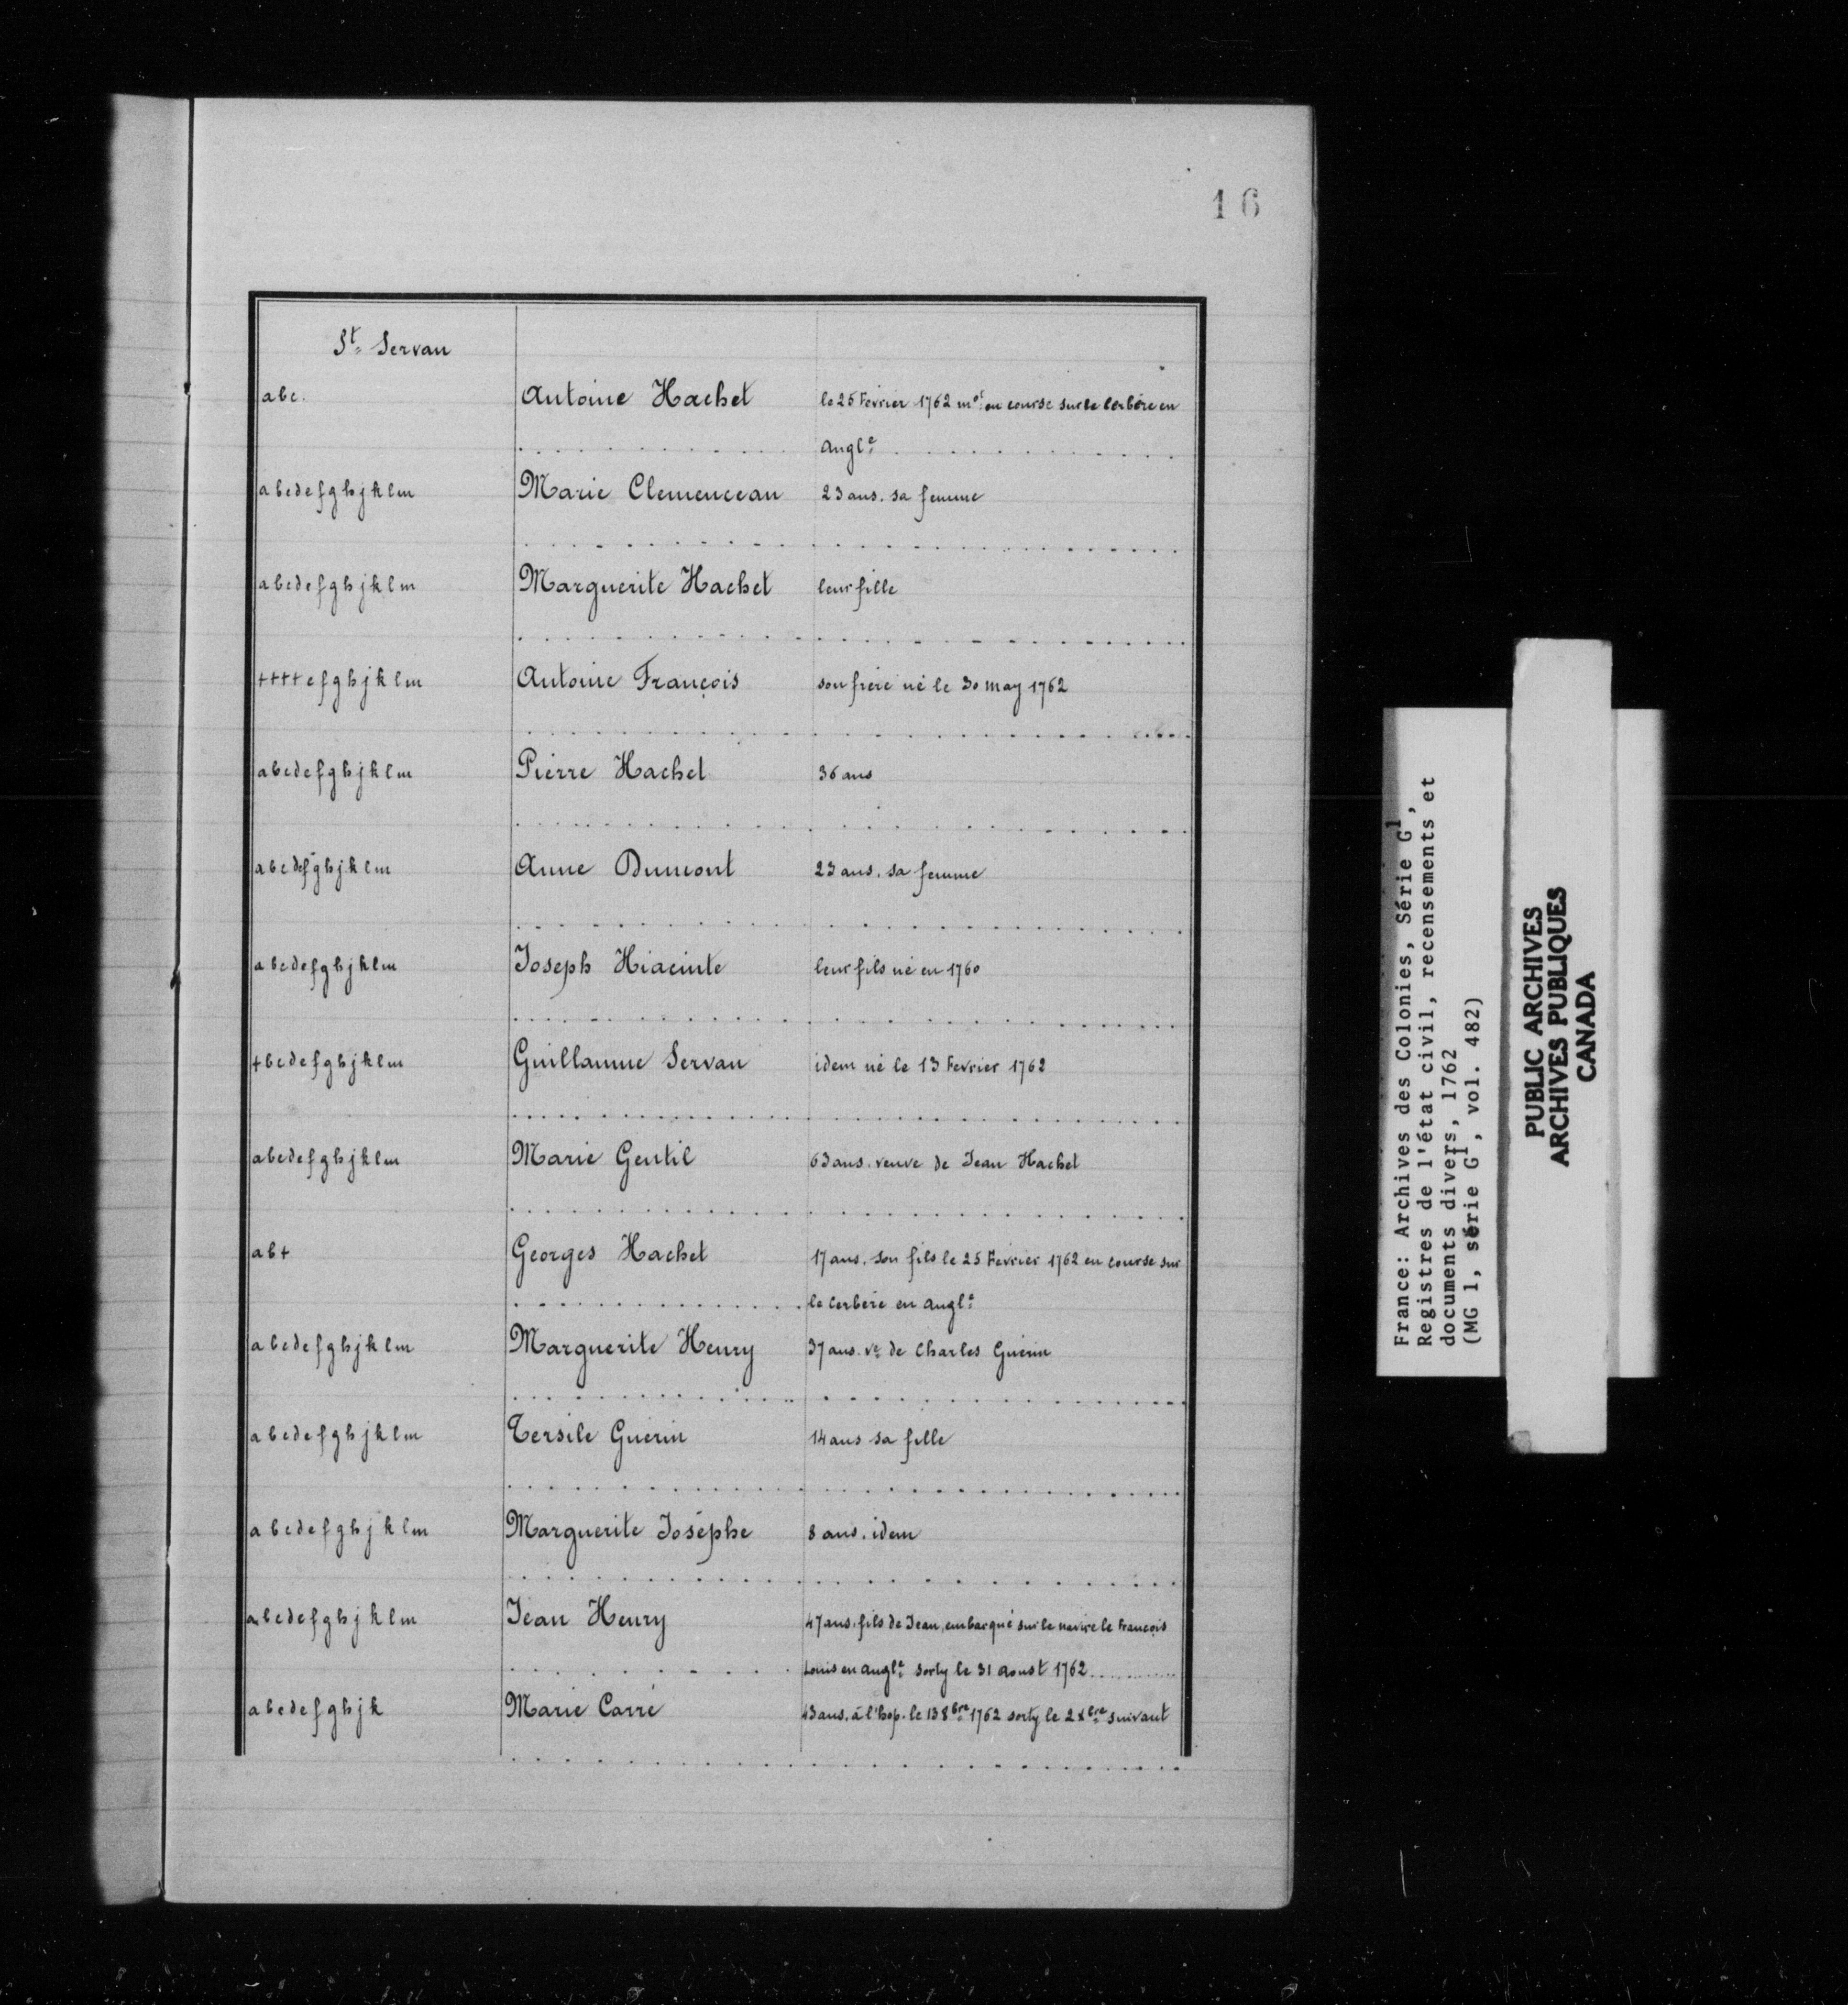 16
St Servan
abc. Antoine Hachet le 25 Fevrier 1762 mot en course sur le Cerbère en
Angle
abcdefghjklm Marie Clemenceau 23 ans. sa femme
abcdefghjklm Marguerite Hachet leur fille
++++efghjklm Antoine François son frère né le 30 may 1762
abcdefghjklm Pierre Hachet 36 ans
abcdefghjklm Anne Dumont 23 ans. sa femme
abcdefghjklm Joseph Hiacinte leur fils né en 1760
+bcdefghjklm Guillaume Servan idem né le 13 Fevrier 1762
abcdefghjklm Marie Gentil 63 ans. veuve de Jean Hachet
ab+ Georges Hachet 17 ans. son fils le 25 Fevrier 1762 en course sur
le Cerbère en Angle
abcdefghjklm Marguerite Henry 37 ans. ve de Charles Guérin
abcdefghjklm Tersile Guérin 14 ans sa fille
abcdefghjklm Marguerite Josèphe 8 ans. idem
abcdefghjklm Jean Henry 47 ans. fils de Jean, embarqué sur le navire le François
Louis en Angle sorty le 31 Aoust 1762
abcdefghjk Marie Carré 43 ans. à l'hop. le 13 8bre 1762 sorty le 2 xbre suivant
France: Archives des Colonies, Série G1,
Registres de l'état civil, recensements et
documents divers, 1762
(MG 1, série G1, vol. 482)
PUBLIC ARCHIVES
ARCHIVES PUBLIQUES
CANADA